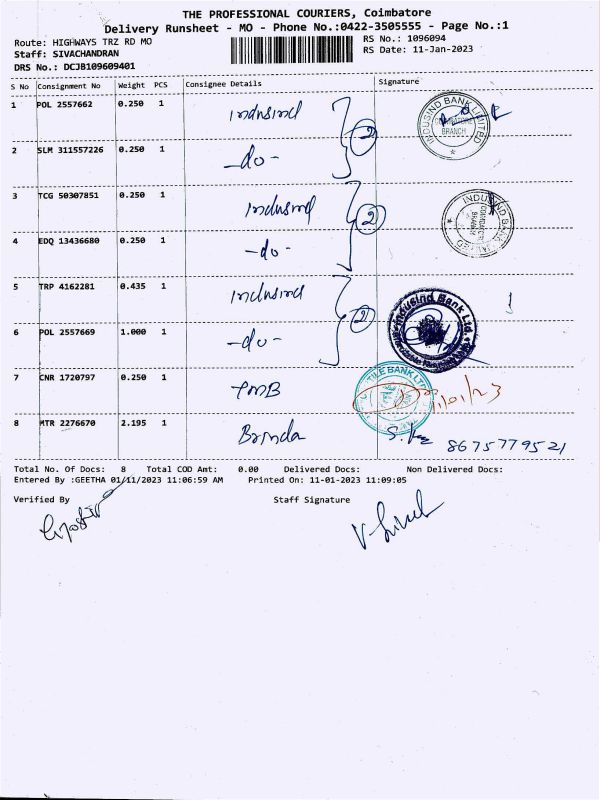 THE PROFESSIONAL COURIERS, Coimbatore
Delivery Runsheet - MO - Phone No.:0422-3505555 - Page No.:1
Route: HIGHWAYS TRZ RD MO
RS No.: 1096094
Staff: SIVACHANDRAN
RS Date: 11-Jan-2023
DRS No.: DCJB109609401
S No Consignment No Weight PCS Consignee Details Signature
1 POL 2557662 0.250 1 Indusind
2
INDUSIND BANK LIMITED
COIMBATORE
BRANCH
2 SLM 311557226 0.250 1 -do-
3 TCG 50307851 0.250 1 Indusind
2
INDUSIND BANK LIMITED
COIMBATORE
BRANCH
4 EDQ 13436680 0.250 1 -do-
5 TRP 4162281 0.435 1 Indusind
2
Indusind Bank Ltd.
6 POL 2557669 1.000 1 -do-
7 CNR 1720797 0.250 1 TMB
TILE BANK LTD
/01/23
8 MTR 2276670 2.195 1 Brinda
8675779521
Total No. Of Docs: 8 Total COD Amt: 0.00 Delivered Docs: Non Delivered Docs:
Entered By :GEETHA 01/11/2023 11:06:59 AM Printed On: 11-01-2023 11:09:05
Verified By Staff Signature